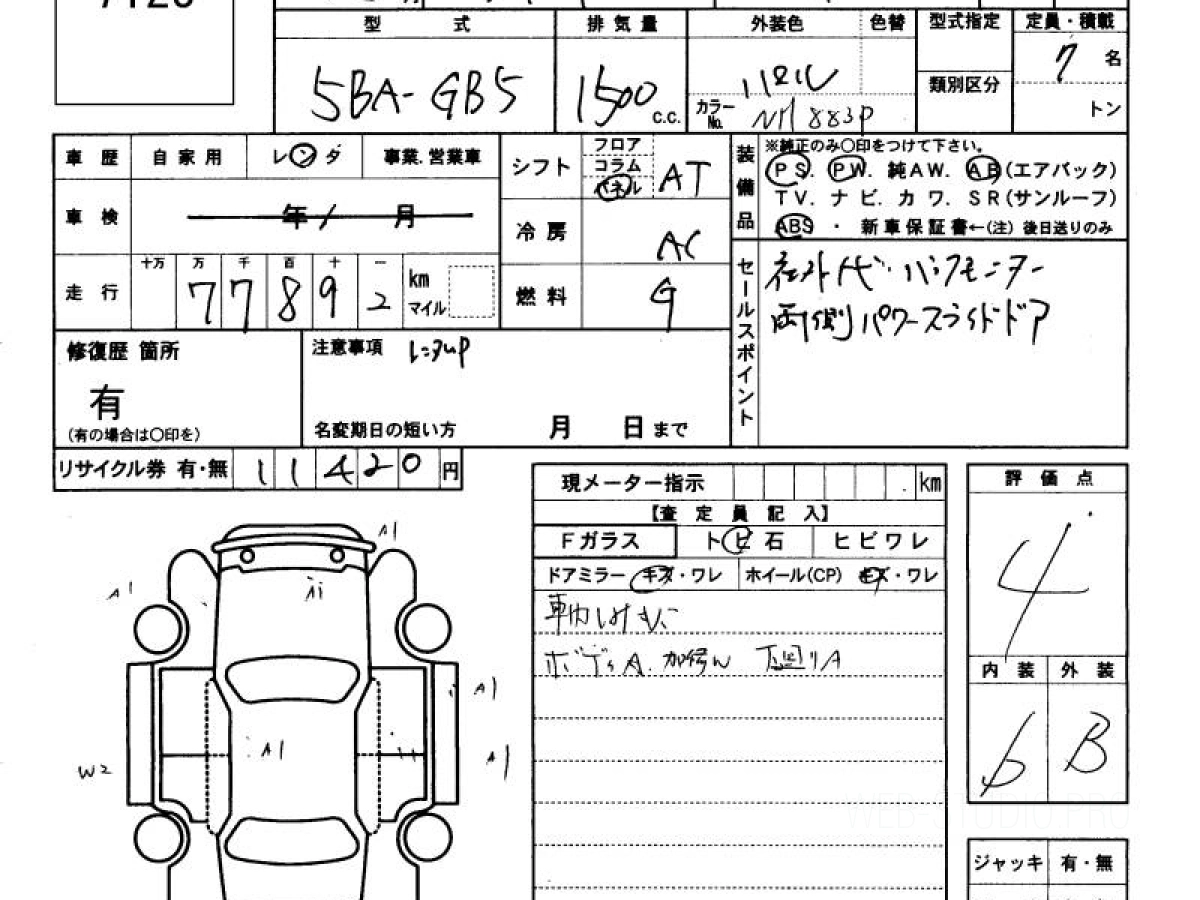 型 式 排気量 外装色 色替 型式指定 定員・積載
5BA-GB5 1500 c.c. パール 7 名
類別区分
カラーNo. NH883P トン
車歴 自家用 レンタ 事業.営業車
シフト フロア コラム パネル AT
装備品 ※純正のみ〇印をつけて下さい。
PS. PW. 純AW. AB(エアバック)
TV. ナビ. カワ. SR(サンルーフ)
ABS ・ 新車保証書←(注) 後日送りのみ
車検 年 月
冷房 AC
走行 十万 万 千 百 十 一
77892 km マイル
燃料 G
セールスポイント
社外ナビ・バックモニター
両側パワースライドドア
修復歴 箇所
有
(有の場合は〇印を)
注意事項 レンタUP
名変期日の短い方 月 日まで
リサイクル券 有・無 11420 円
現メーター指示 . km
【査定員記入】
Fガラス トビ石 ヒビワレ
ドアミラー キズ・ワレ ホイール(CP) キズ・ワレ
下回りA
評価点
4
内装 外装
b B
A1
A1
A1
A1
A1
W2
ジャッキ 有・無